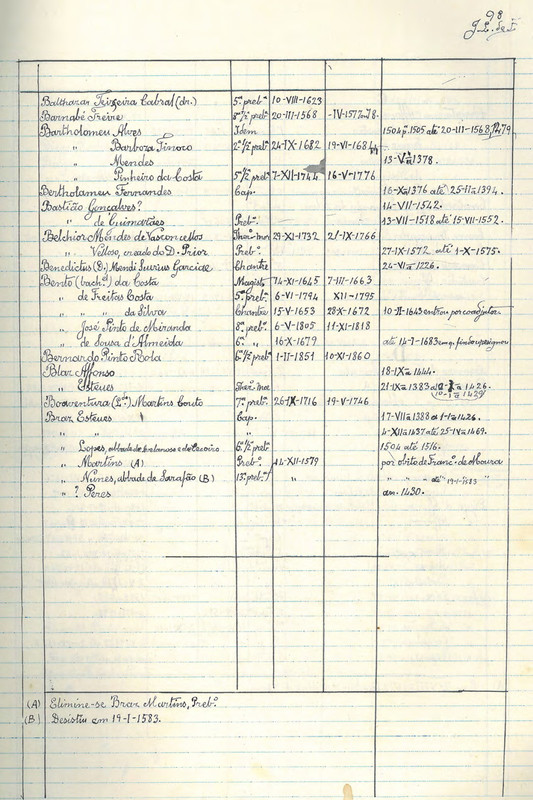 98
Balthazar Teixeira Cabral (dr.) 5ª preb.ª 10-VIII-1623
Barnabé Freire 8ª ½ preb.ª 20-III-1568 -IV-1577 78.
Bartholomeu Alves Idem 1505 até 20-III-1568
" Barboza Tinoro 2ª ½ preb.ª 24-IX-1682 19-VI-1684
" Mendes 13-V-1378.
" Pinheiro da Costa 5ª ½ preb.ª 7-XII-1744 16-V-1776
Bertholameu Fernandes Cap. 16-X-1376 até 25-II-1394.
Bastião Gonçalves? 14-VII-1542.
" de Guimarães Preb.º 13-VII-1518 até 15-VII-1552.
Belchior Mendes de Vasconcellos Thes.º-mor 29-XI-1732 21-IX-1766
" Velloso, creado do D. Prior Preb.º 27-IX-1572 até 1-X-1575.
Benedictus (D.) Mendi Garciae Chantre 24-VI-1226.
Bento (bach.el) da Costa Magist. 14-XI-1645 7-III-1663
" de Freitas Costa 5ª preb.ª 6-VI-1794 XII-1795
" " da Silva Chantre 15-V-1653 28-X-1672 10-II-1643 entrou por coadjutor
" José Pinto de Miranda 8ª preb.ª 6-V-1805 11-XI-1818
" de Sousa d'Almeida 6ª " 16-X-1679 até 14-I-1683
Bernardo Pinto Rola 6ª ½ preb.ª 1-II-1851 10-XI-1860
Blaz Affonso 18-IX-1444.
" Esteves Thes.º mor 21-IX-1383 a 1426.
Boaventura (L.do) Martins Couto 7ª preb.ª 26-IX-1716 19-V-1746
Braz Esteves Cap. 17-VII-1388 a 1-I-1426.
" " 4-XII-1437 até 25-IV-1469.
" Lopes, abbade de 6ª ½ preb.ª 1504 até 1516.
" Martins (A) Preb.º 14-XII-1579 por obito de Franc.º de Moura
" Nunes, abbade de Sarafão (B) 13ª preb.ª " " " " até 19-I-1583
" ? Peres an. 1430.
(A) Elimine-se Braz Martins, Preb.º
(B) Desistiu em 19-I-1583.